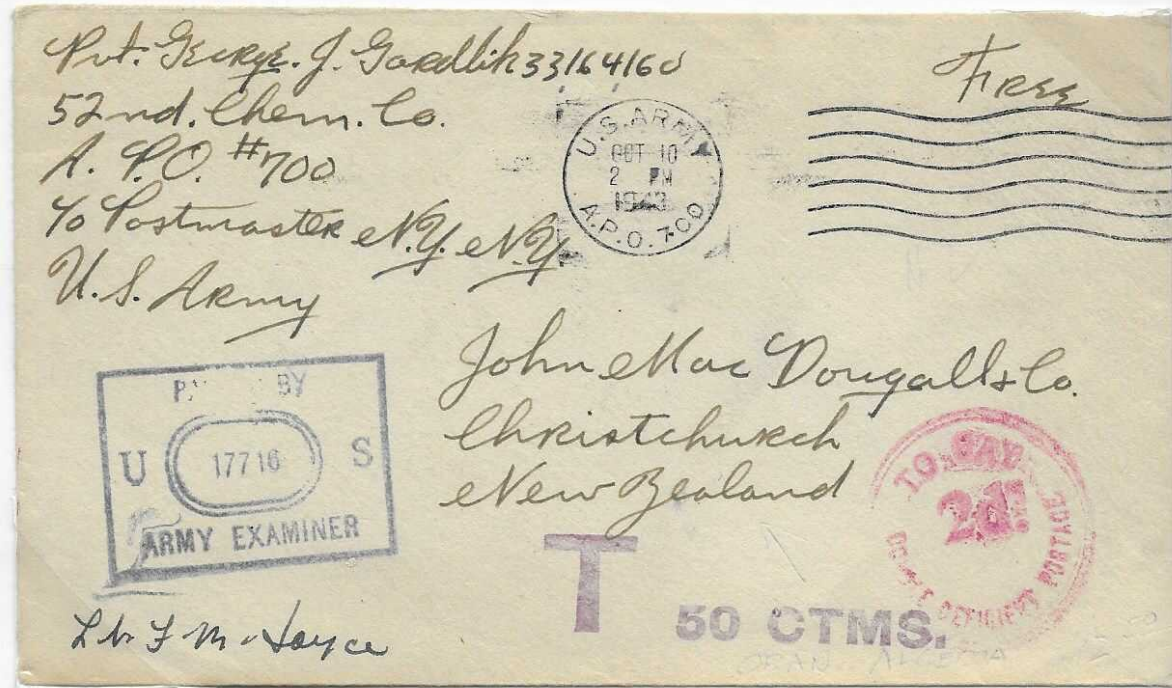 Pvt. George. J. Gordlik 33164160
52nd. Chem. Co.
A. P.O. #700
c/o Postmaster N.Y. N.Y.
U.S. Army
Free
U.S. ARMY
OCT 10
2 PM
1943
A.P.O. 700
John MacDougall & Co.
Christchurch
New Zealand
BY
U 17716 S
ARMY EXAMINER
TO PAY
2d.
DEFICIENT POSTAGE
T
50 CTMS.
ORAN ALGERIA
Joyce